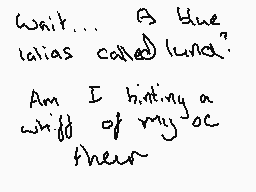 Wait... A blue
latias called luna?
Am I hinting a
whiff of my oc
their